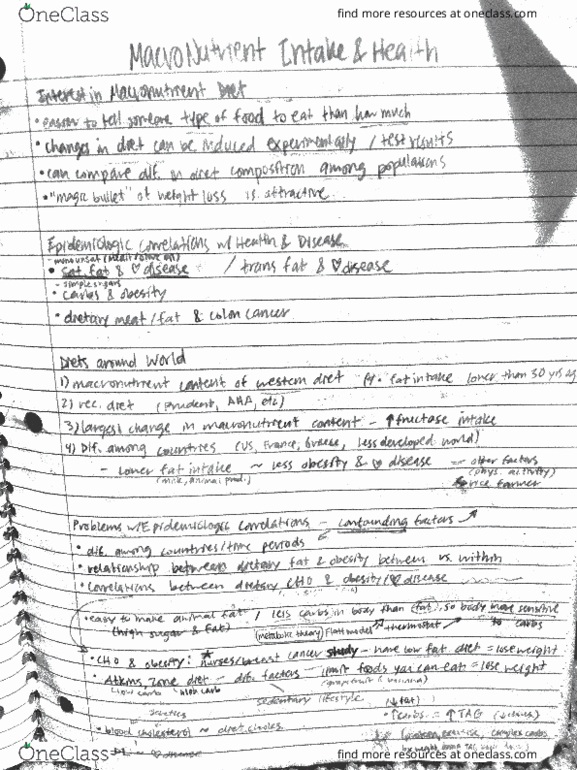 OneClass
find more resources at oneclass.com
MacroNutrient Intake & Health
Interest in Macronutrient Diet
• easier to tell someone type of food to eat than how much
• changes in diet can be induced experimentally / test results
• can compare dif. in diet composition among populations
• "magic bullet" of weight loss is attractive
Epidemiologic Correlations w/ Health & Disease
• sat. fat & ♡ disease / trans fat & ♡ disease
- simple sugars
• carbs & obesity
• dietary meat / fat & colon cancer
Diets around World
1) macronutrient content of western diet fat intake lower than 30 yrs ago
2) rec. diet (Prudent, AHA, etc)
3) largest change in macronutrient content - ↑ fructose intake
4) Dif. among countries (US, France, Greece, less developed world)
- Lower fat intake ~ less obesity & ♡ disease - other factors
(milk, animal prod.) (phys. activity)
rice farmer
Problems w/ Epidemiologic correlations - confounding factors
• dif. among countries / time periods
• relationship between dietary fat & obesity between vs. within
• Correlations between dietary CHO & obesity / ♡ disease
• easy to make animal fat / less carbs in body than fat, so body more sensitive
(high sugar & fat) (metabolic theory) Flatt model → thermostat to carbs
• CHO & obesity: * nurses/breast cancer study - have low fat diet = lose weight
• Atkins, Zone diet - dif. factors - limit foods you can eat = lose weight
low carb
sedentary lifestyle
(↓ fat)
↑ carbs = ↑ TAG
• blood cholesterol ~ diet choles.
OneClass
find more resources at oneclass.com